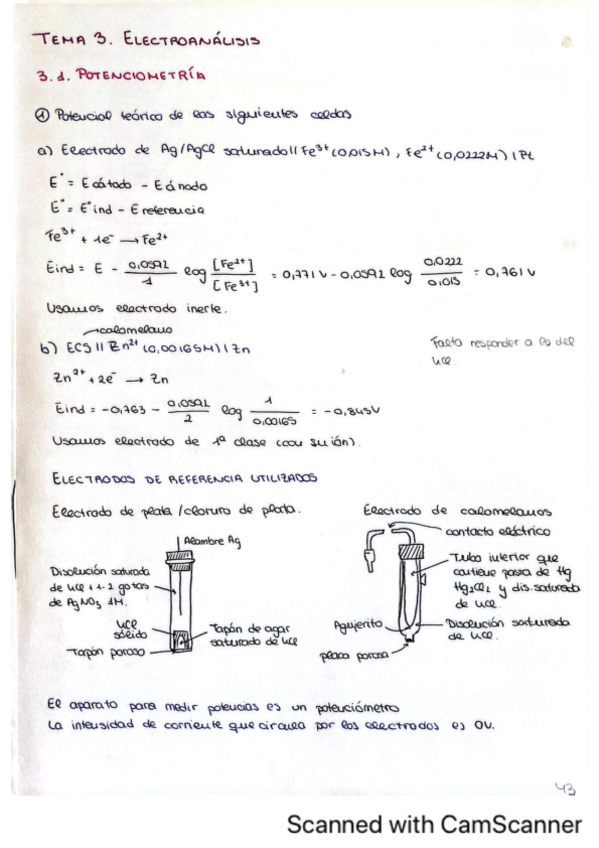 TEMA 3. ELECTROANÁLISIS
3.1. POTENCIOMETRÍA
① Potencial teórico de las siguientes celdas
a) Electrodo de Ag/AgCl saturado || Fe³⁺ (0,015M), Fe²⁺ (0,0222M) | Pt
E° = E cátodo - E ánodo
E° = E° ind - E referencia
Fe³⁺ + 1e⁻ → Fe²⁺
Eind = E - 0,0592/1 log [Fe²⁺]/[Fe³⁺] = 0,771V - 0,0592 log 0,0222/0,015 = 0,761V
Usamos electrodo inerte.
calomelano
b) ECS || Zn²⁺ (0,00165M) | Zn
Falta responder a lo del
KCl.
Zn²⁺ + 2e⁻ → Zn
Eind = -0,763 - 0,0592/2 log 1/0,00165 = -0,845V
Usamos electrodo de 1ª clase (con su ión).
ELECTRODOS DE REFERENCIA UTILIZADOS
Electrodo de plata/cloruro de plata.
Alambre Ag
Disolución saturada
de KCl + 1-2 gotas
de AgNO₃ 1M.
KCl
sólido
Tapón poroso
Tapón de agar
saturado de KCl
Electrodo de calomelanos
contacto eléctrico
Tubo interior que
contiene pasta de Hg
Hg₂Cl₂ y dis. saturada
de KCl.
Agujerito
Disolución saturada
de KCl.
placa porosa
El aparato para medir potencias es un potenciómetro
La intensidad de corriente que circula por los electrodos es 0V.
43
Scanned with CamScanner